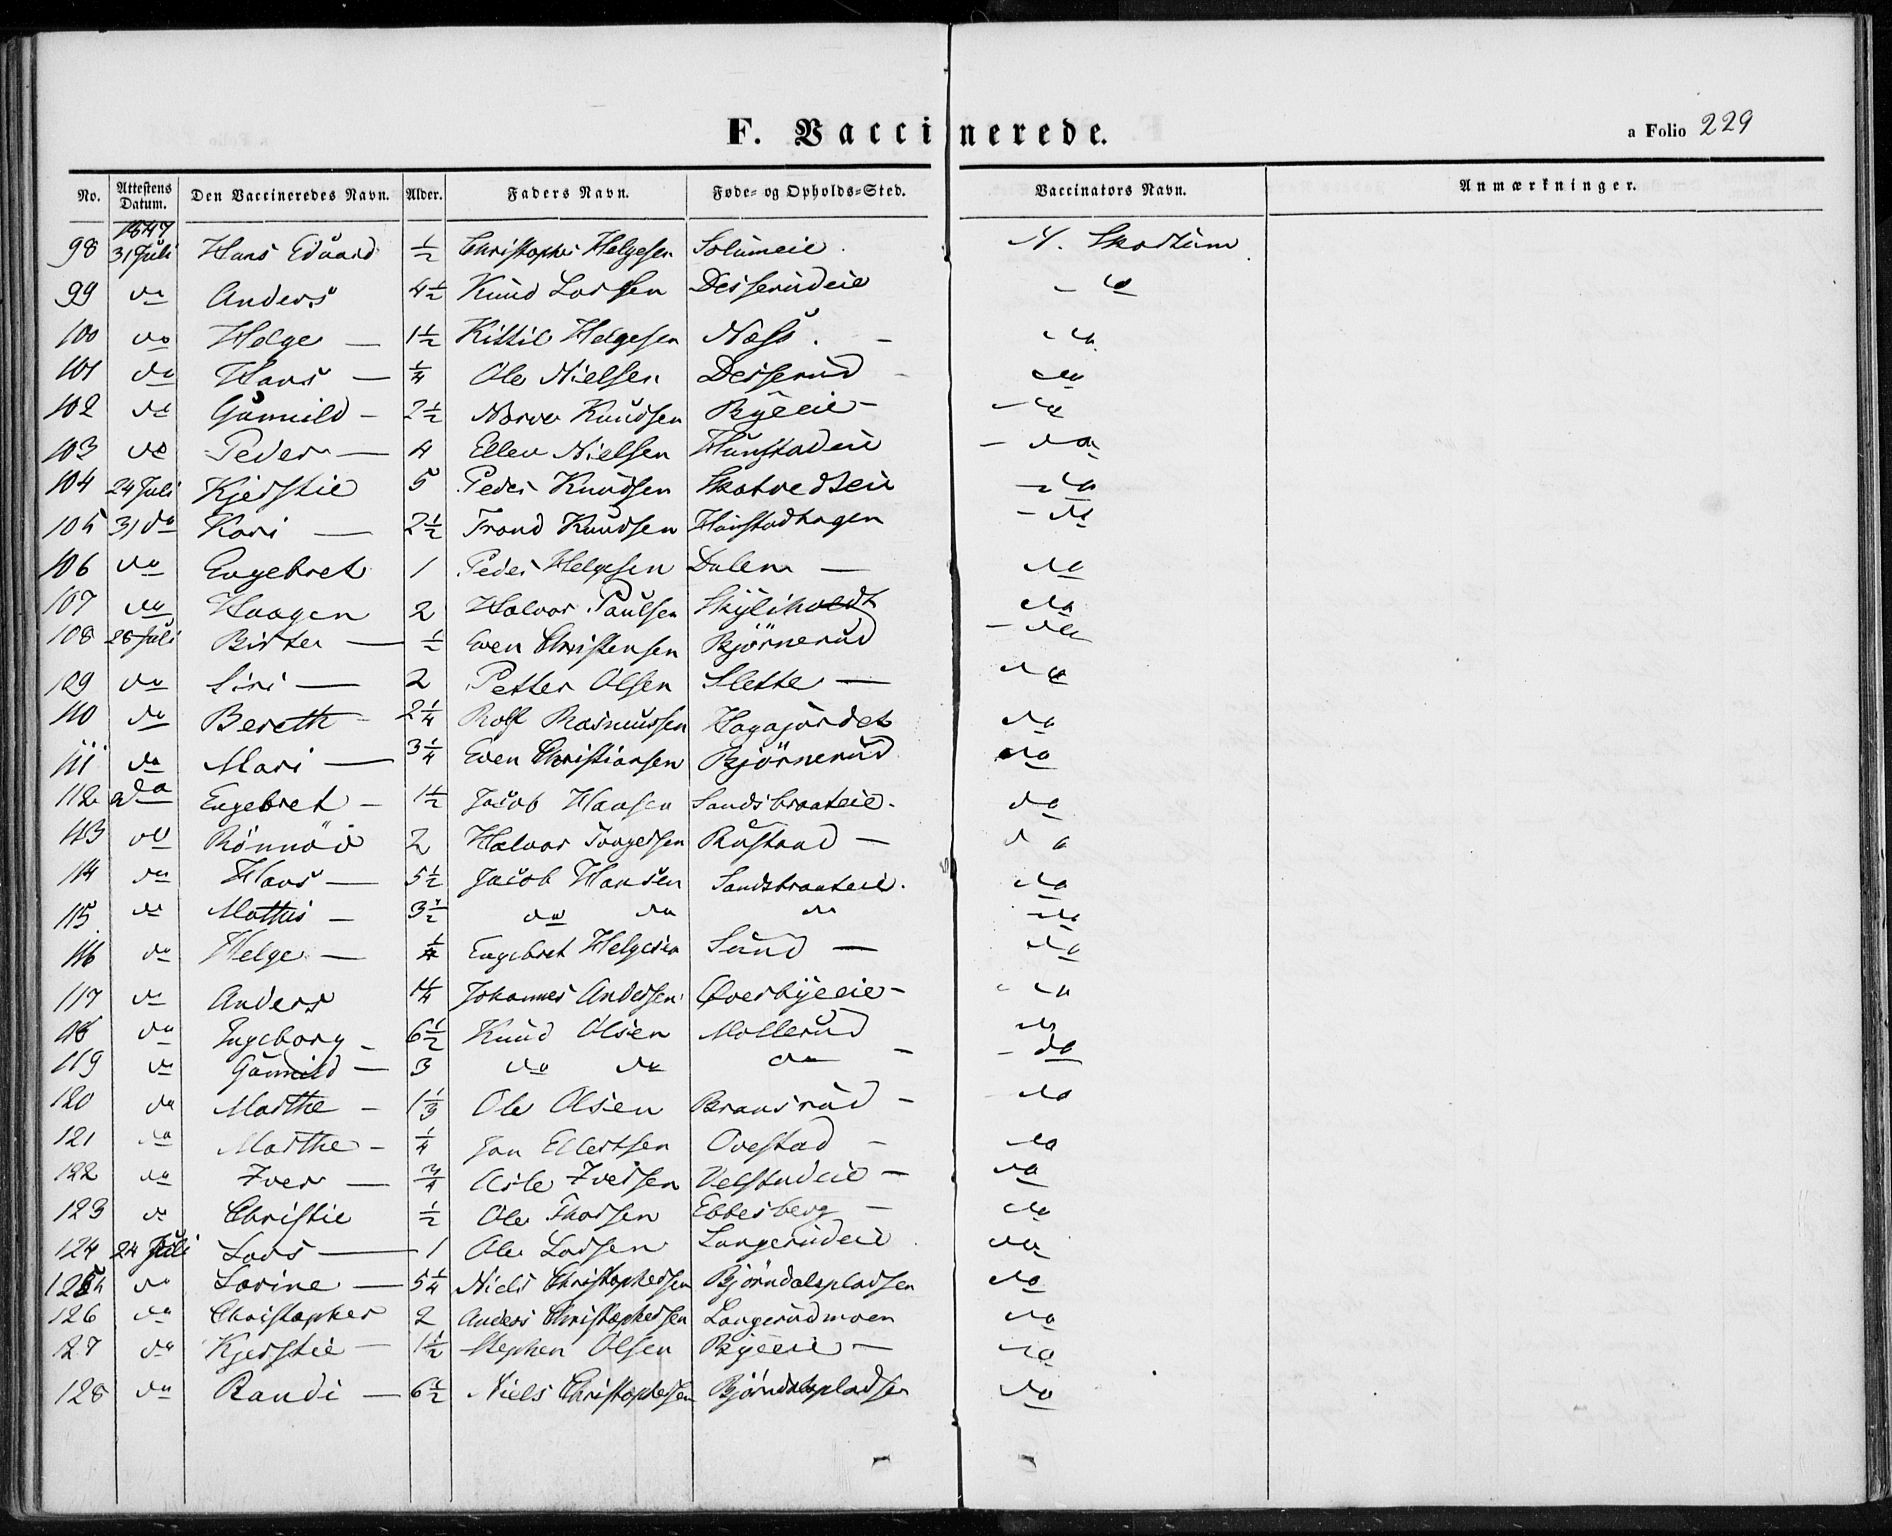 F. Vaccinerede.
a Folio 229
No. Attestens Datum. Den Vaccineredes Navn. Alder. Faders Navn. Føde- og Opholds-Sted. Vaccinators Navn. Anmærkninger.
1847
98 31 Juli Hans Eduard ½ Christopher Helgesen Solumeie N. Skodtum
99 do Anders 4½ Knud Larsen Desserudeie - do
100 do Helge — 1½ Kittil Helgesen Næss. - do
101 do Hans — ¼ Ole Nielsen Desserud - do
102 do Gunnild - 2½ Knudsen Byeeie - - do
103 do Peder — 4 Ellen Nielsen Hunstadeie - do
104 24 Juli Kjerstie 5 Peder Knudsen Skotvedteie - do
105 31 do Kari — 2½ Trond Knudsen Hunstadhagen - do
106 do Engebret 1 Peder Helgesen Dalen — do
107 do Haagen 2 Halvor Paulsen do
108 28 Juli Birte — ½ Even Christensen Bjørnerud - do
109 do Siri — 2 Petter Olsen Slette — do
110 do Bereth - 2¼ Rolf Rasmussen Hagajordet do
111 do Mari — 3¼ Even Christiansen Bjørnerud do
112 do Engebret - 1½ Jacob Hansen Sandsbraateie. do
113 do Rønnøv 2 Halvor Torgersen Rustand — do
114 do Hans — 5½ Jacob Hansen Sandsbraateie. do
115 do Mathis - 3½ do do do do
116 do Helge — ¼ Engebret Helgesen Sund — do
117 do Anders 1¼ Johannes Andersen Øverbyeeie - do
118 do Ingeborg - 6½ Knud Olsen Mollerud do
119 do Gunnild — 3 do do do - - do
120 do Marthe - 1⅓ Ole Olsen Bransrud - do
121 do Marthe - ¼ Jan Ellertsen Ovestad - do
122 do Iver — ¾ Asle Iversen Velstadeie - do
123 do Christie ½ Ole Thorsen Ebbesberg - do
124 24 Juli Lars — 1 Ole Larsen Langerudeie do
125 do Karine — 5¼ Niels Christophersen Bjørndalspladsen do
126 do Christopher 2 Anders Christophersen Langerudmoen do
127 do Kjerstie — 1½ Stephen Olsen Byeeie — do
128 do Randi — 6½ Niels Christophersen Bjørndalspladsen do